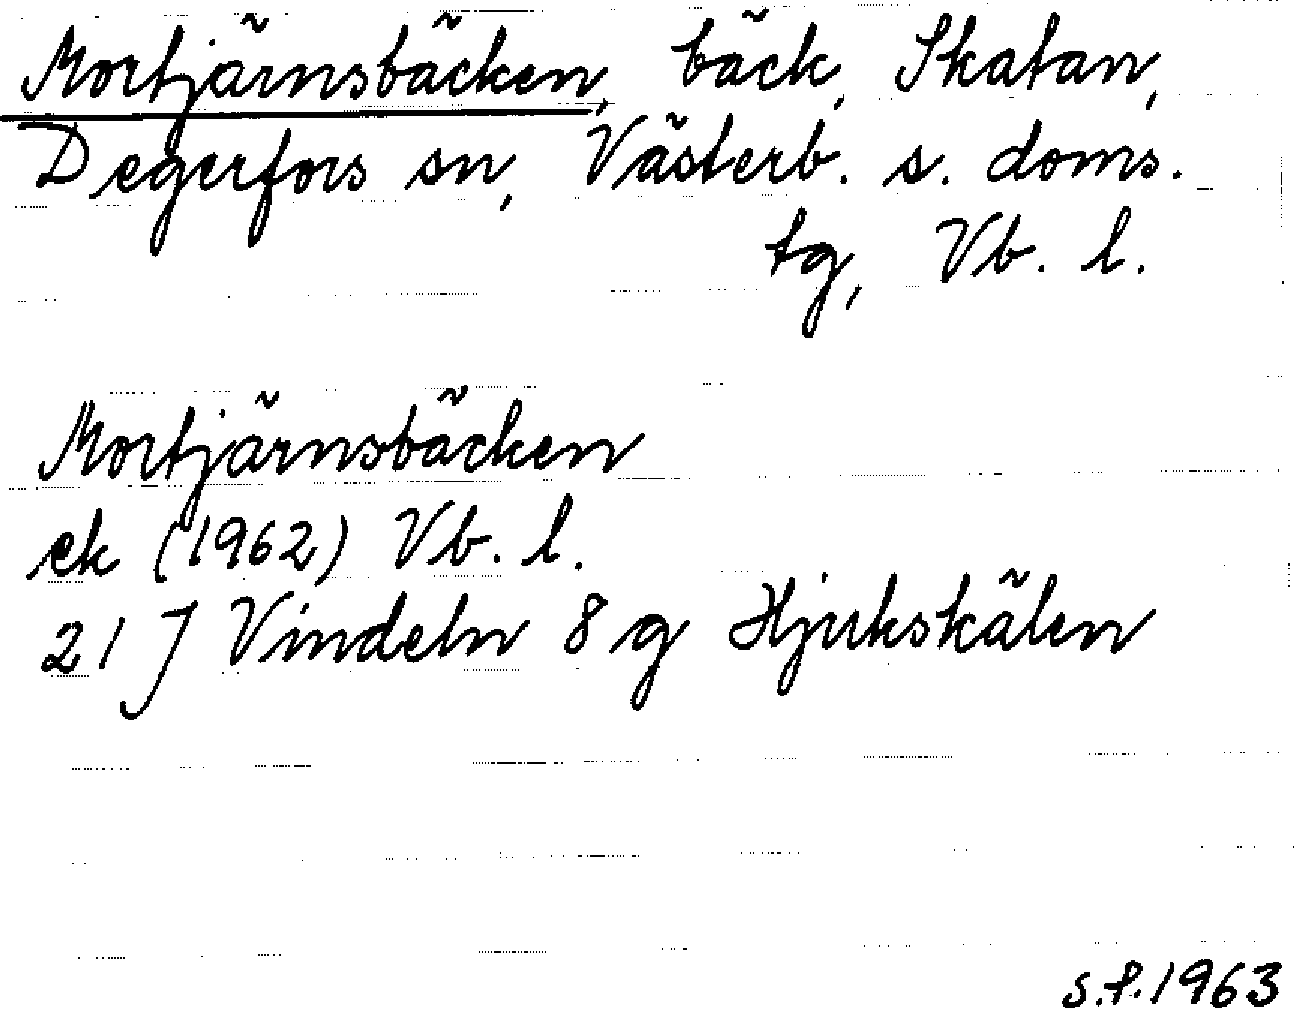 Mortjärnsbäcken, bäck, Skatan,
Degerfors sn, Västerb. s. doms.
tg, Vb. l.
Mortjärnsbäcken
ek (1962) Vb. l.
21 J Vindeln 8 g Hjukskälen
s.f. 1963